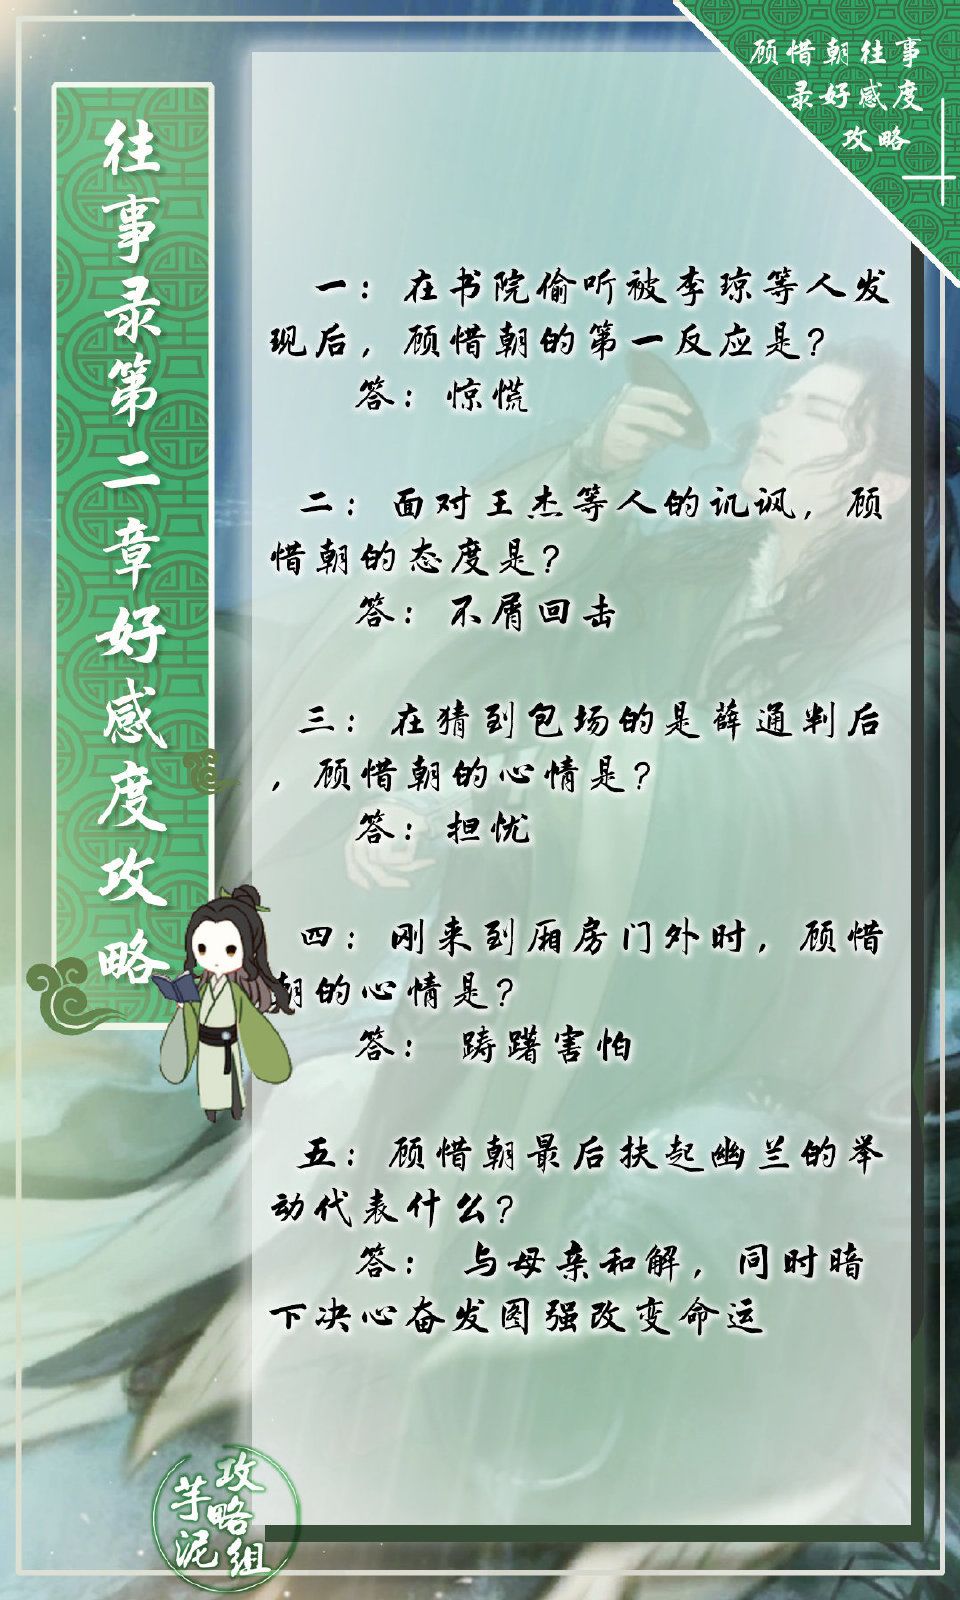 顾惜朝往事
录好感度
攻略
往事录第二章好感度攻略
一：在书院偷听被李琼等人发
现后，顾惜朝的第一反应是？
答：惊慌
二：面对王杰等人的讥讽，顾
惜朝的态度是？
答：不屑回击
三：在猜到包场的是薛通判后
，顾惜朝的心情是？
答：担忧
四：刚来到厢房门外时，顾惜
朝的心情是？
答：踌躇害怕
五：顾惜朝最后扶起幽兰的举
动代表什么？
答：与母亲和解，同时暗
下决心奋发图强改变命运
芋泥
攻略组